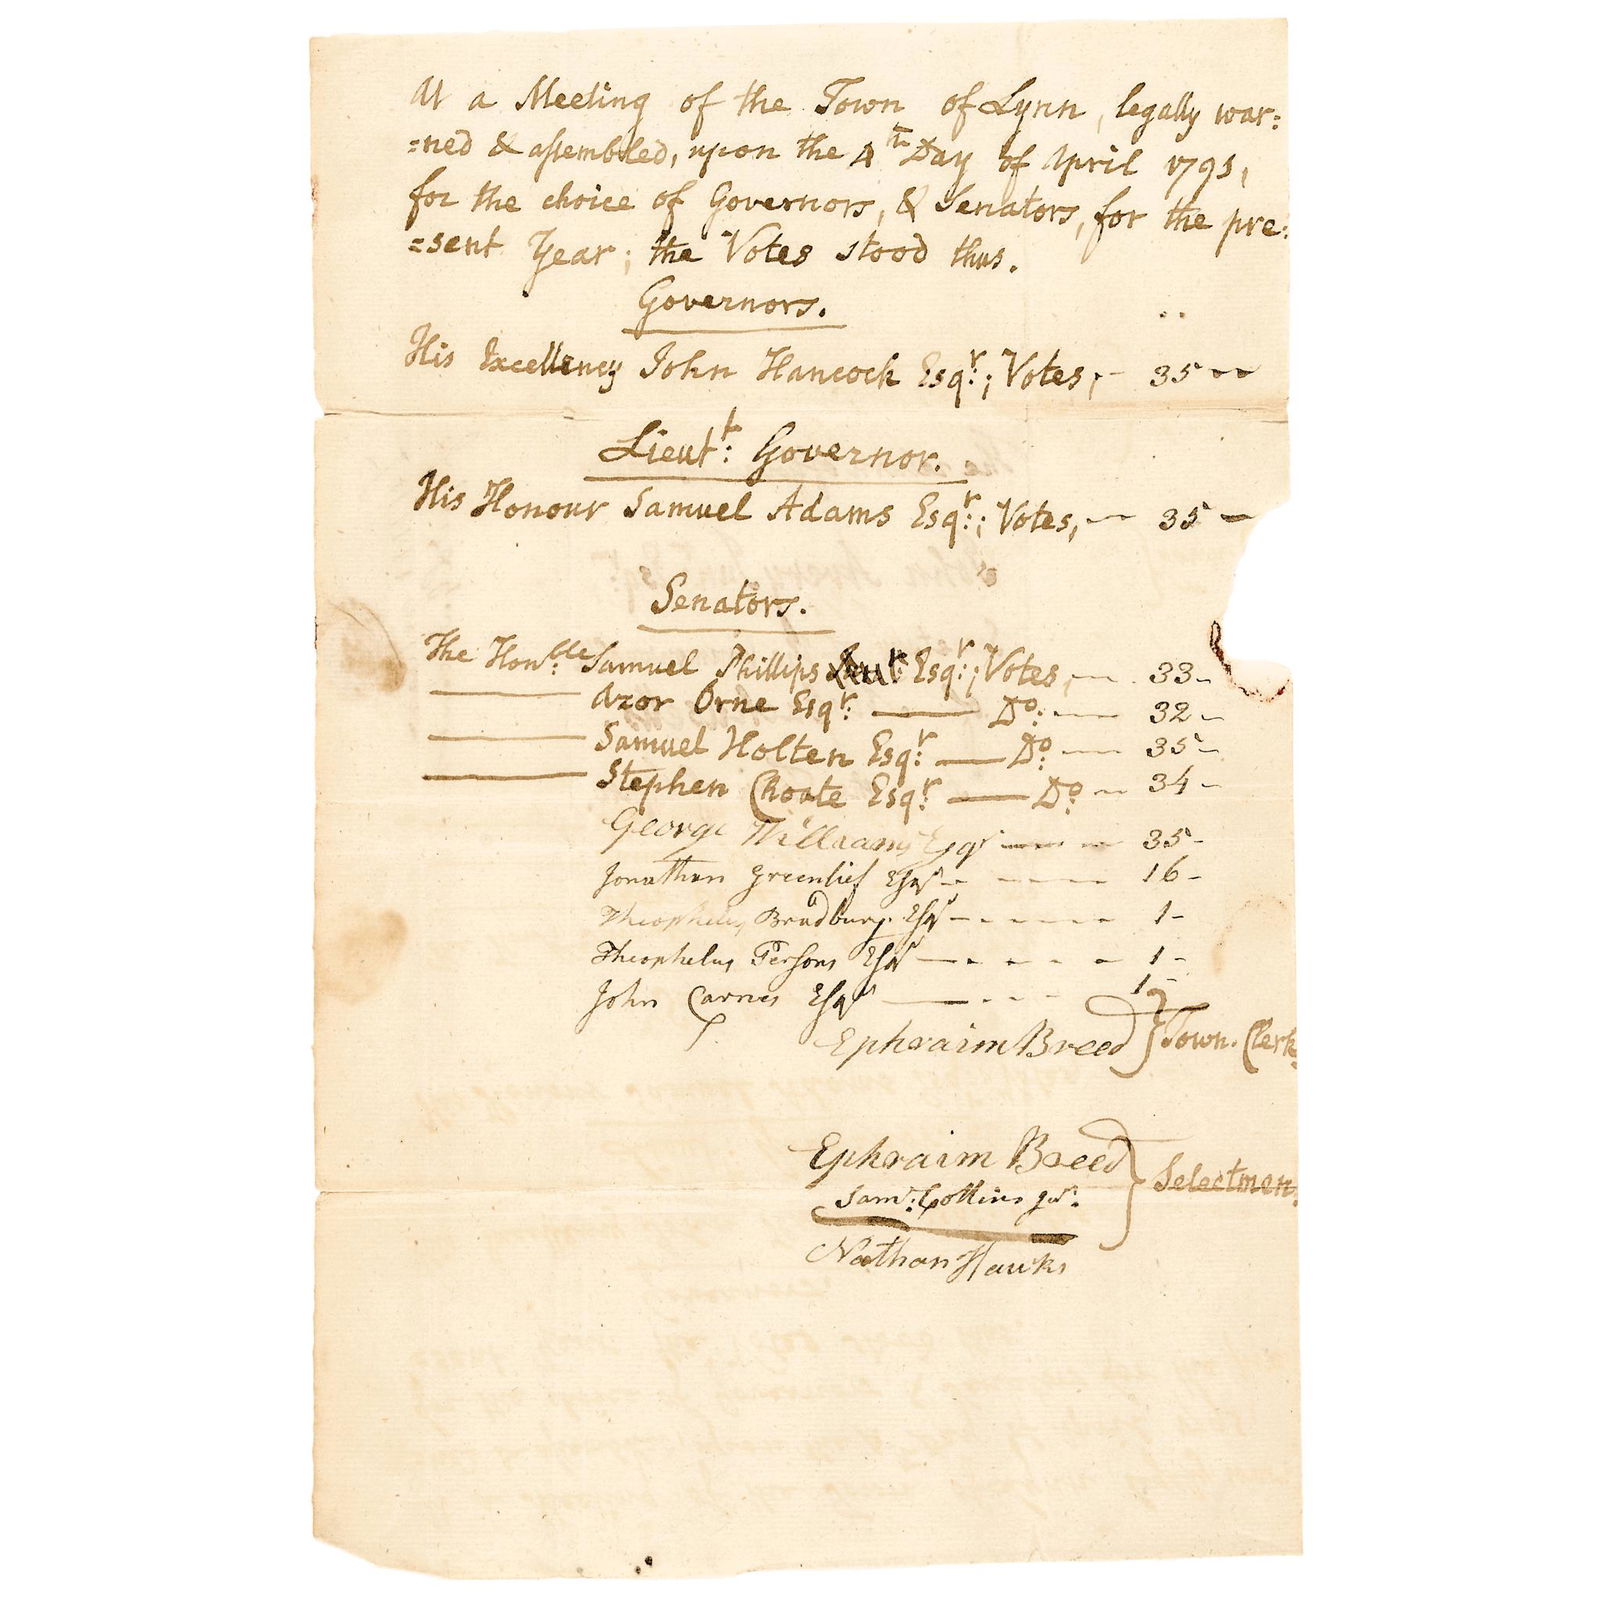 At a Meeting of the Town of Lynn, legally war:
=ned & assembled, upon the 4th Day of April 1791,
for the choice of Governors, & Senators, for the pre:
=sent Year; the Votes stood thus.
Governors.
His Excellency John Hancock Esqr:; Votes, - 35 --
Lieutt: Governor.
His Honour Samuel Adams Esqr:; Votes, - 35 -
Senators.
The Honble: Samuel Phillips Esqr:; Votes, - 33 -
Azor Orne Esqr: — Do: — 32 -
Samuel Holten Esqr: — Do: — 35 -
Stephen Choate Esqr: — Do: - 34 -
George Williams Esqr — 35 -
Jonathan Greenlief Esqr - - - - 16 -
Theophilus Bradbury Esqr - - - - - 1 -
Theophelus Persons Esqr - - - - - 1 -
John Carnes Esqr — - - - 1 -
Ephraim Breed } Town. Clerk
Ephraim Breed } Selectmen.
Saml: Collins Jur:
Nathan Hawks